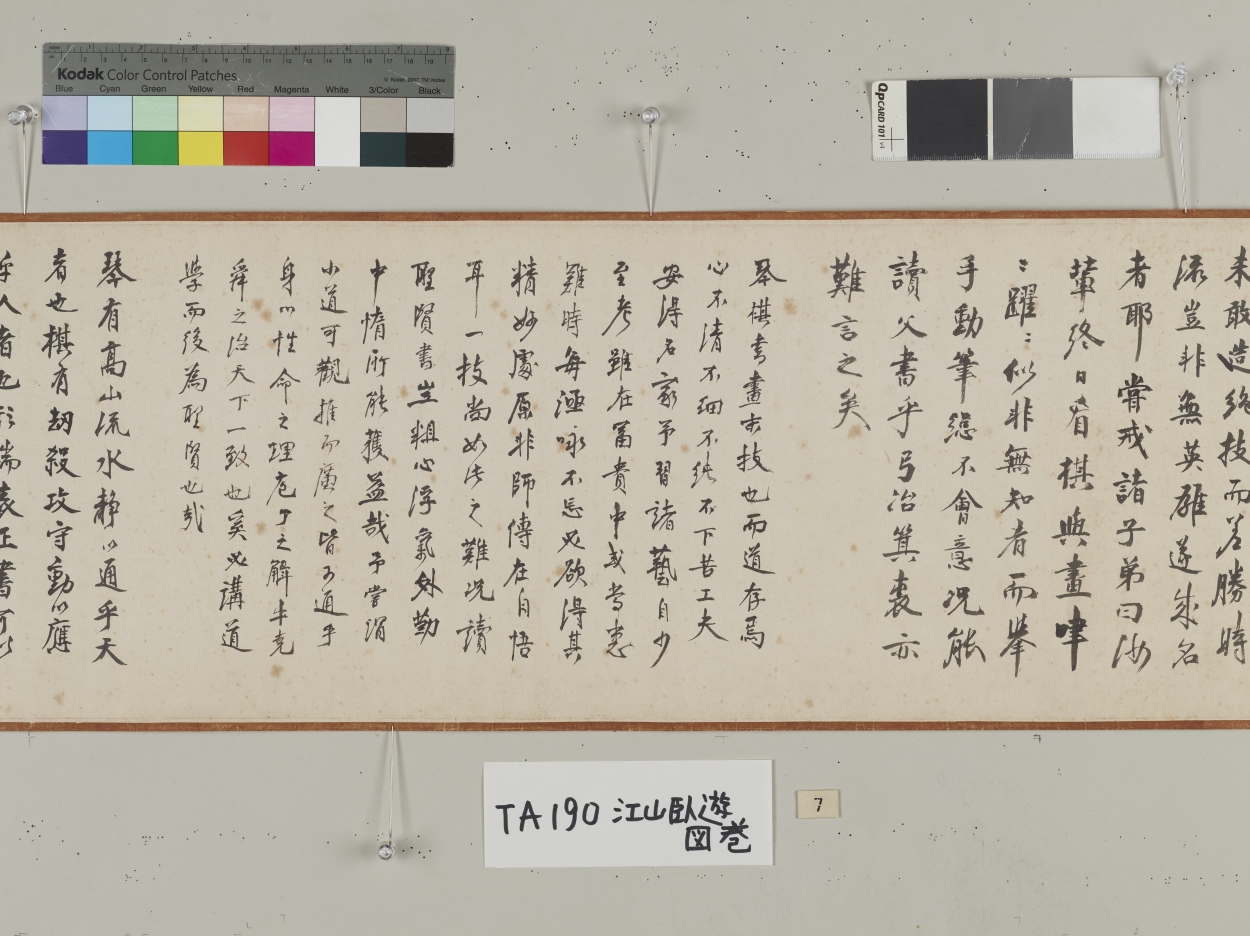 Kodak Color Control Patches
© Kodak, 2007 TM: Kodak
Blue Cyan Green Yellow Red Magenta White 3/Color Black
QPCARD 101 v4
未敢造絶技而差勝時
流豈非無英雄遂成名
者耶嘗戒諸子弟曰汝
輩終日看棋與畫
躍似非無知者而舉
手動筆總不會意况能
讀父書乎弓冶箕裘亦
難言之矣
琴棋書畫末技也而道存焉
心不清不細不純不下苦工夫
安得名家予習諸藝自少
至老雖在富貴中或當患
難時每涵咏不忘必欲得其
精妙處原非師傳在自悟
耳一技尚如此之難况讀
聖賢書豈粗心浮氣外勤
中惰所能獲益哉予嘗謂
小道可觀推而廣之皆可通乎
身心性命之理庖丁之解牛堯
舜之治天下一致也奚必講道
學而後為聖賢也哉
琴有高山流水静以通乎天
者也棋有劫殺攻守動以應
乎人者也形端表正書可以
TA190 江山臥遊
図巻
7